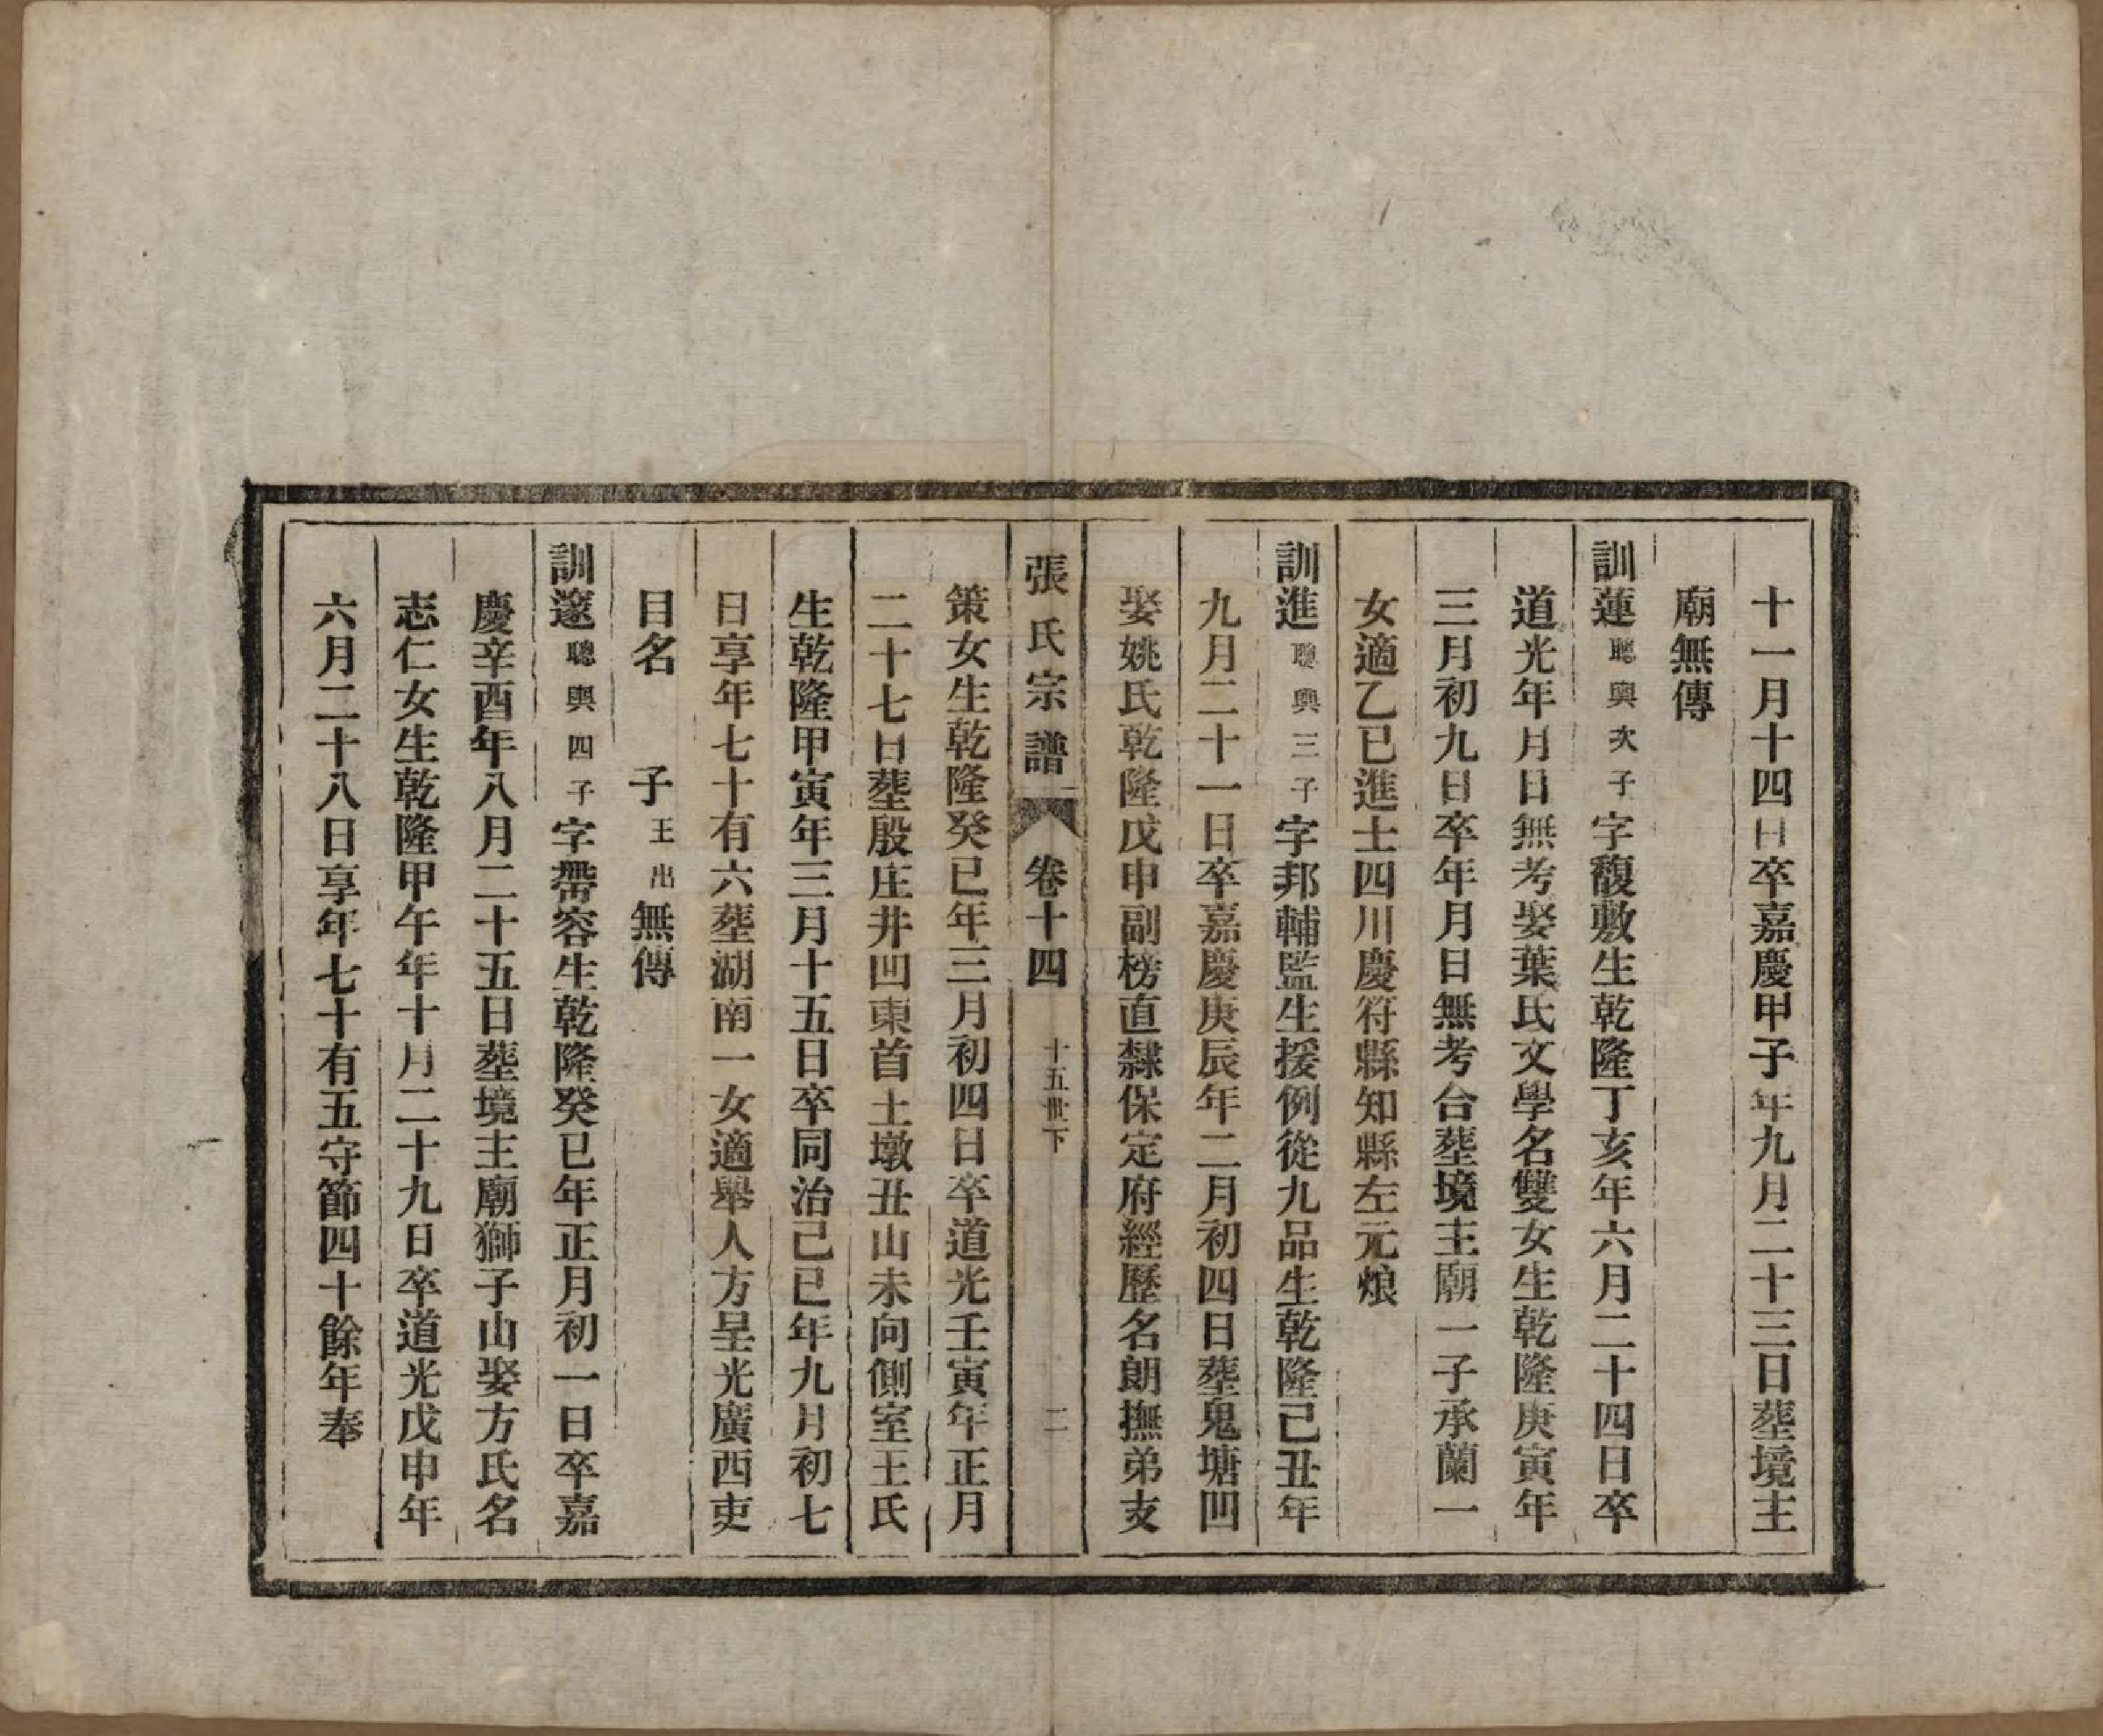 十一月十四日卒嘉慶甲子年九月二十三日塟境主
廟無傳
訓蓮聰興次子字馥敷生乾隆丁亥年六月二十四日卒
道光年月日無考娶葉氏文學名雙女生乾隆庚寅年
三月初九日卒年月日無考合塟境主廟一子承蘭一
女適乙巳進士四川慶符縣知縣左元烺
訓進聰興三子字邦輔監生援例從九品生乾隆己丑年
九月二十一日卒嘉慶庚辰年二月初四日塟鬼塘凹
娶姚氏乾隆戊申副榜直隸保定府經歷名朗撫弟支
張氏宗譜 卷十四 十五世下 二
策女生乾隆癸巳年三月初四日卒道光壬寅年正月
二十七日塟殷庄井凹東首土墩丑山未向側室王氏
生乾隆甲寅年三月十五日卒同治己巳年九月初七
日享年七十有六塟湖南一女適舉人方呈光廣西吏
目名 子王出無傳
訓邃聰興四子字帶容生乾隆癸巳年正月初一日卒嘉
慶辛酉年八月二十五日塟境主廟獅子山娶方氏名
志仁女生乾隆甲午年十月二十九日卒道光戊申年
六月二十八日享年七十有五守節四十餘年奉